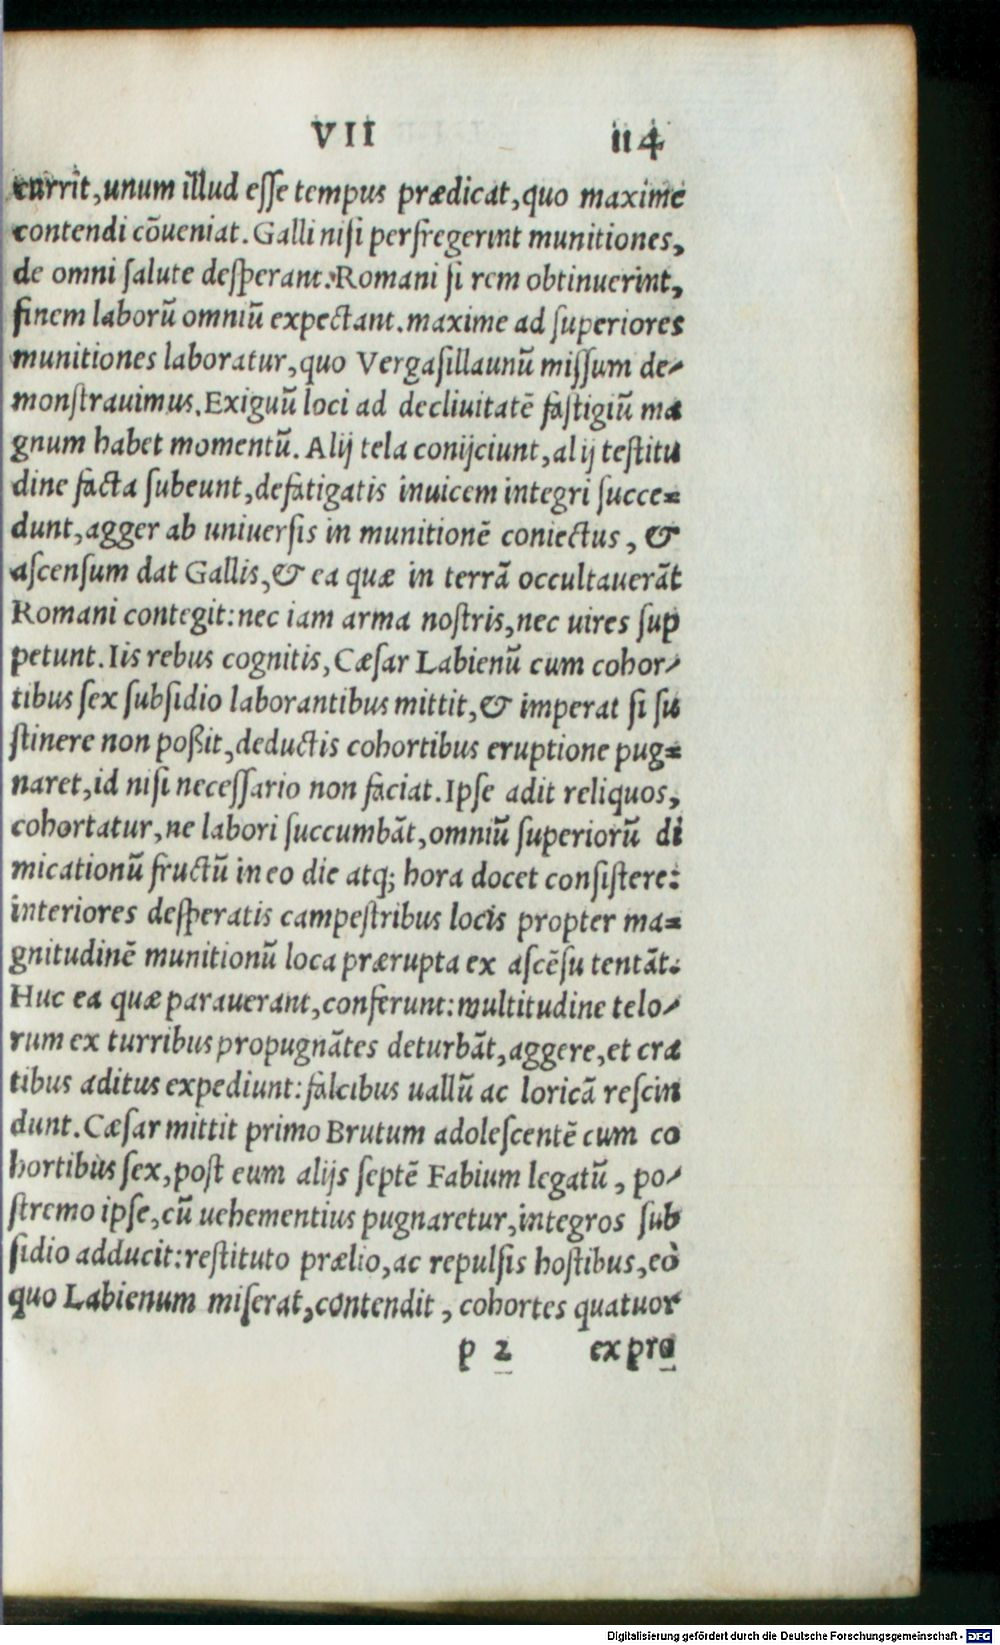 VII 114
currit,unum illud esse tempus prædicat,quo maxime
contendi cōueniat. Galli nisi perfregerint munitiones,
de omni salute desperant. Romani si rem obtinuerint,
finem laborū omniū expectant. maxime ad superiores
munitiones laboratur,quo Vergasillaunū missum de-
monstrauimus. Exiguū loci ad decliuitatē fastigiū ma
gnum habet momentū. Alij tela conijciunt, alij testitu
dine facta subeunt, defatigatis inuicem integri succe=
dunt, agger ab uniuersis in munitionē coniectus, &
ascensum dat Gallis,& ea quæ in terrā occultauerāt
Romani contegit: nec iam arma nostris, nec uires sup
petunt. Iis rebus cognitis, Cæsar Labienū cum cohor-
tibus sex subsidio laborantibus mittit,& imperat si su
stinere non poßit, deductis cohortibus eruptione pug=
naret, id nisi necessario non faciat. Ipse adit reliquos,
cohortatur, ne labori succumbāt, omniū superiorū di
micationū fructū in eo die atq; hora docet consistere:
interiores desperatis campestribus locis propter ma=
gnitudinē munitionū loca prærupta ex ascēsu tentāt:
Huc ea quæ parauerant, conferunt: multitudine telo-
rum ex turribus propugnātes deturbāt, aggere, et cra
tibus aditus expediunt: falcibus uallū ac loricā rescin
dunt. Cæsar mittit primo Brutum adolescentē cum co
hortibus sex, post eum alijs septē Fabium legatū, po-
stremo ipse, cū uehementius pugnaretur, integros sub
sidio adducit: restituto prælio, ac repulsis hostibus, eò
quo Labienum miserat, contendit, cohortes quatuor
p 2 ex pro
Digitalisierung gefördert durch die Deutsche Forschungsgemeinschaft - DFG